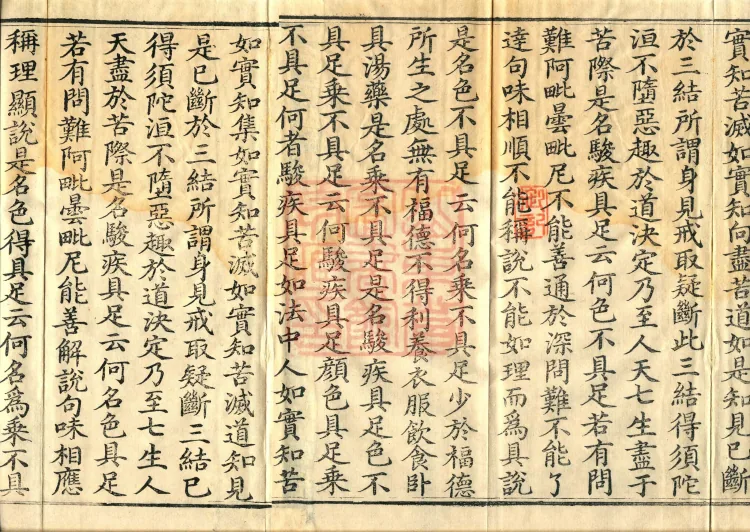 實知苦滅如實知向盡苦道如是知見已斷
於三結所謂身見戒取疑斷此三結得須陀
洹不墮惡趣於道決定乃至人天七生盡于
苦際是名駿疾具足云何色不具足若有問
難阿毗曇毗尼不能善通於深問難不能了
達句味相順不能稱說不能如理而為具說
是名色不具足云何名乘不具足少於福德
所生之處無有福德不得利養衣服飲食卧
具湯藥是名乘不具足是名駿疾具足色不
具足乘不具足云何駿疾具足顏色具足乘
不具足何者駿疾具足如法中人如實知苦
如實知集如實知苦滅如實知苦滅道知見
是已斷於三結所謂身見戒取疑斷三結已
得須陀洹不墮惡趣於道決定乃至七生人
天盡於苦際是名駿疾具足云何名色具足
若有問難阿毗曇毗尼能善解說句味相應
稱理顯說是名色得具足云何名為乘不具